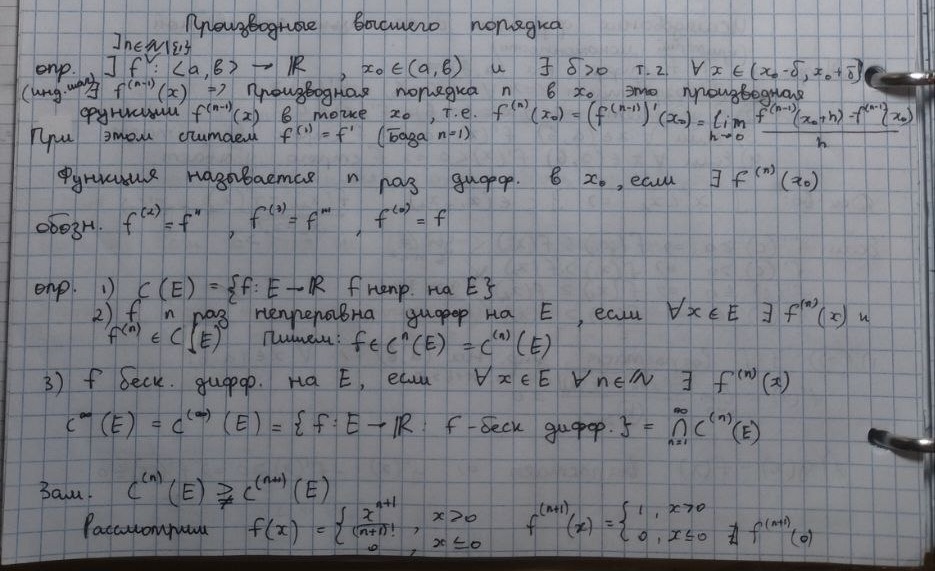 Производные высшего порядка
∃ n∈ℕ\{1}
опр. ∃ f : <a,b> → ℝ , x₀ ∈ (a,b) и ∃ δ>0 т.ч. ∀ x ∈ (x₀-δ, x₀+δ)
(инд. шаг) ∃ f⁽ⁿ⁻¹⁾(x) => Производная порядка n в x₀ это производная
функции f⁽ⁿ⁻¹⁾(x) в точке x₀ , т.е. f⁽ⁿ⁾(x₀) = (f⁽ⁿ⁻¹⁾)'(x₀) = lim_{h→0} (f⁽ⁿ⁻¹⁾(x₀+h) - f⁽ⁿ⁻¹⁾(x₀))/h
При этом считаем f⁽¹⁾ = f' (База n=1)
Функция называется n раз дифф. в x₀ , если ∃ f⁽ⁿ⁾(x₀)
обозн. f⁽²⁾ = f'' , f⁽³⁾ = f''' , f⁽⁰⁾ = f
опр. 1) C(E) = {f: E → ℝ f непр. на E}
2) f n раз непрерывна дифор на E , если ∀x ∈ E ∃ f⁽ⁿ⁾(x) и
f⁽ⁿ⁾ ∈ C(E) Пишем: f ∈ Cⁿ(E) = C⁽ⁿ⁾(E)
3) f беск. дифф. на E, если ∀ x ∈ E ∀ n ∈ ℕ ∃ f⁽ⁿ⁾(x)
C^∞(E) = C^(∞)(E) = { f: E → ℝ : f - беск дифф. } = ⋂_{n=1}^∞ C⁽ⁿ⁾(E)
Зам. C⁽ⁿ⁾(E) ⊋ C⁽ⁿ⁺¹⁾(E)
Рассмотрим f(x) = { xⁿ⁺¹/(n+1)! , x>0 ; 0 , x≤0 f⁽ⁿ⁺¹⁾(x) = { 1 , x>0 ; 0 , x≤0 ∄ f⁽ⁿ⁺¹⁾(0)